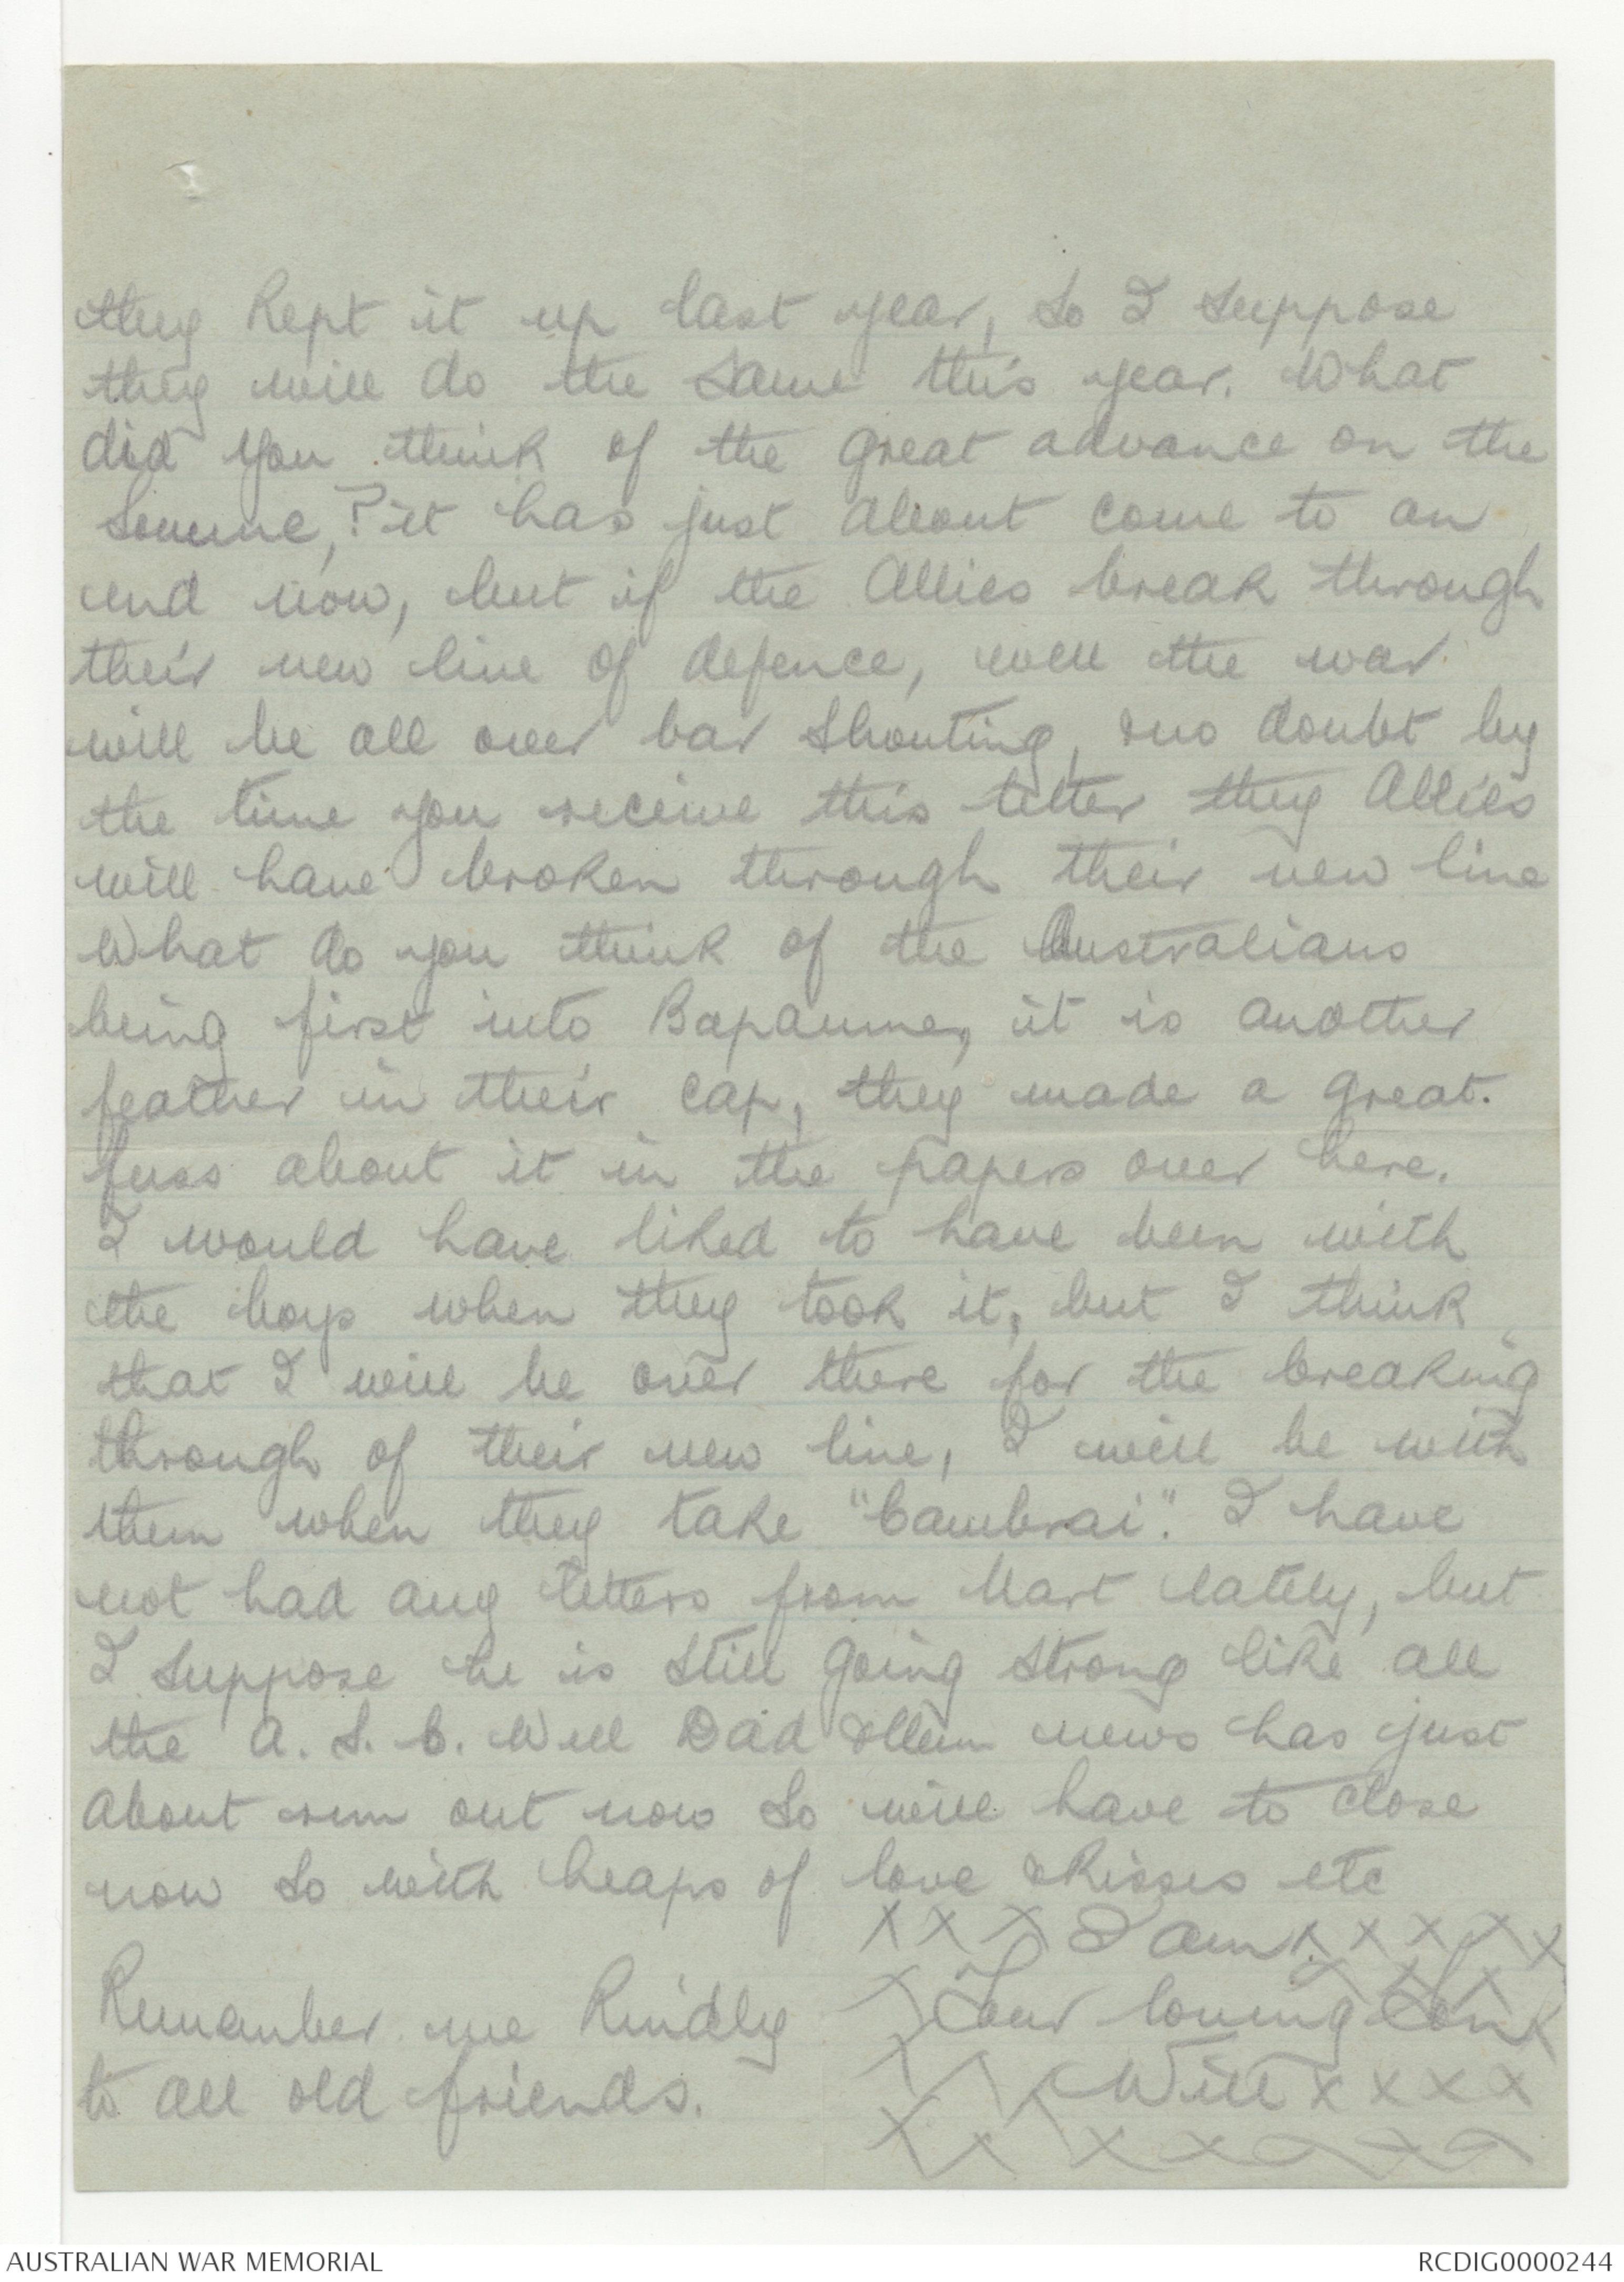 they kept it up last year, so I suppose
they will do the same this year. What
did you think of the great advance on the
Somme,? it has just about come to an
end now, but if the Allies break through
their new line of defence, well the war
will be all over bar shouting, & no doubt by
the time you receive this letter they Allies
will have broken through their new line
What do you think of the Australians
being first into Bapaume, it is another
feather in their cap, they made a great.
fuss about it in the papers over here.
I would have liked to have been with
the boys when they took it, but I think
that I will be over there for the breaking
through of their new line, I will be with
them when they take "Cambrai". I have
not had any letters from Mart lately, but
I suppose he is still going strong like all
the A. S. C. Well Dad & Mum news has just
about run out now so will have to close
now so with heaps of love & kisses etc
x x x I am x x x x x
Your loving Son
Will x x x x
Remember me kindly
to all old friends.
AUSTRALIAN WAR MEMORIAL
RCDIG0000244